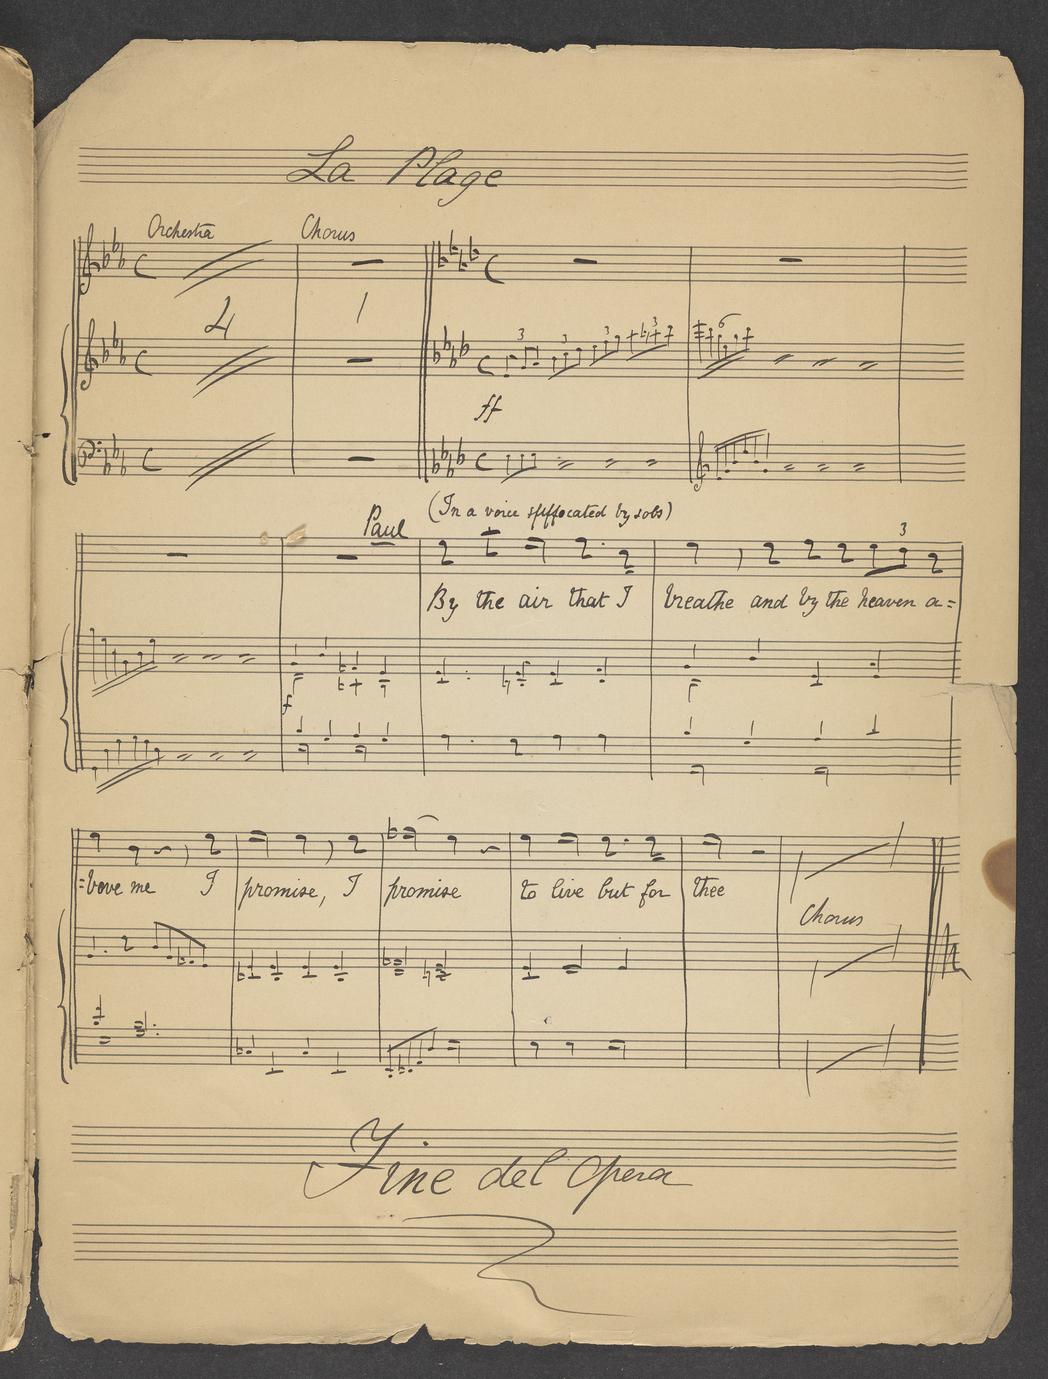 La Plage
Orchestra Chorus
4 1
3 3 3 3 6
ff
Paul (In a voice suffocated by sobs)
3
By the air that I breathe and by the heaven a=
f
=bove me I promise, I promise to live but for thee
Chorus
Fine del Opera